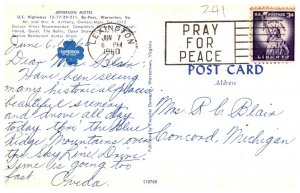 JEFFERSON MOTEL
Highways 15-17-29-211, By-Pass, Warrenton, Va.
Mr. and Mrs. A. Anthony, Owners-Mgrs.
Duncan Hines Recommended.
241
LEXINGTON
JUN 7
PM
1960
PRAY
FOR
PEACE
U.S. POSTAGE
3¢
LIBERTY
SUPERIOR
POST CARD
Address
June 6,
Dear Mrs. Blain,
Have been seeing
many historical places
beautiful scenery
and drove all day
today on the Blue
Ridge Mountains over
the Sky Line Drive.
Time is going too
fast. Oveda
Mrs. R. C. Blair
Concord, Michigan